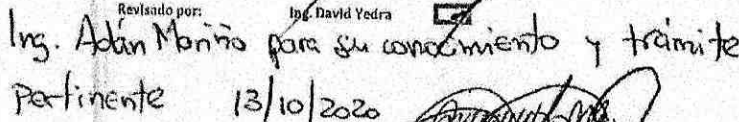 Revisado por: Ing. David Yedra
Ing. Adán Mariño para su conocimiento y trámite
pertinente 13/10/2020